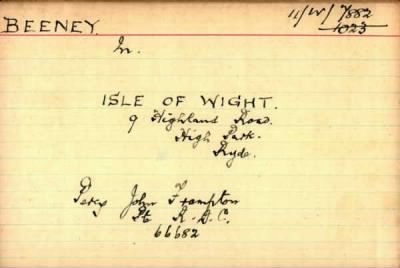 BEENEY.
11/W/7882
1023
Mr.
ISLE OF WIGHT.
9 Highland Road.
High Park.
Ryde.
Percy John Frampton
Pte R.D.C.
66682